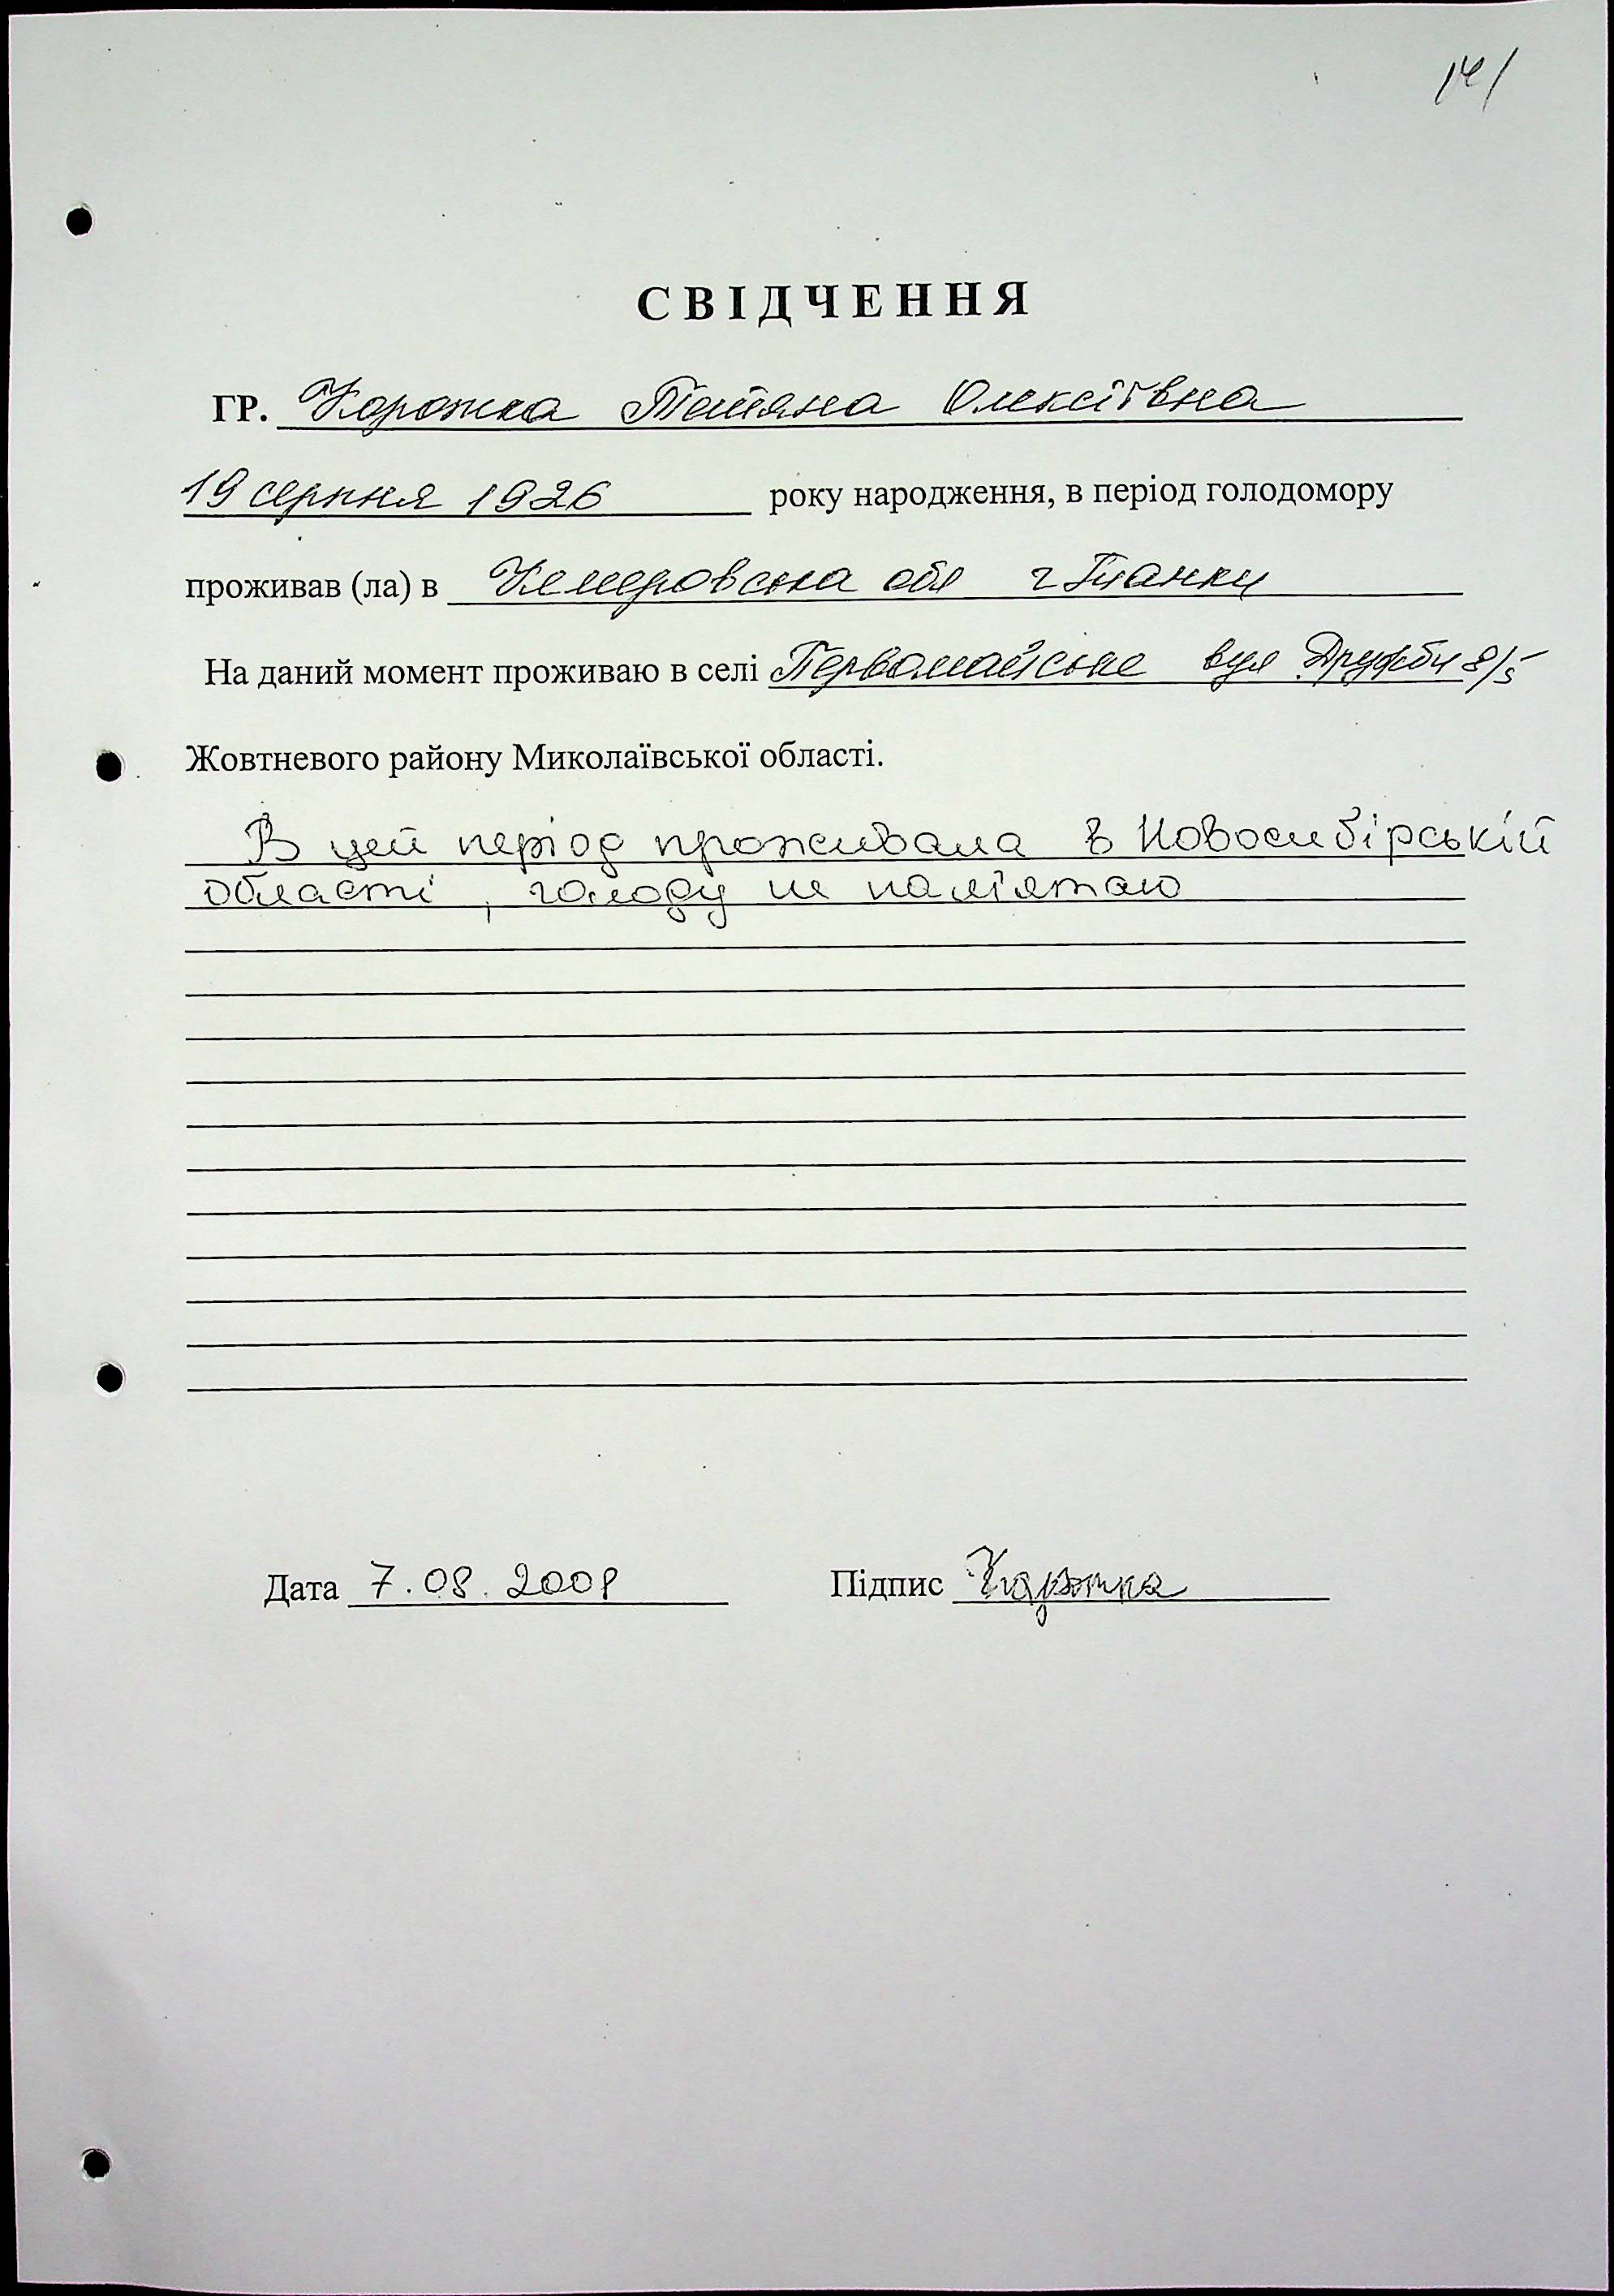 141
СВІДЧЕННЯ
ГР. Коротка Тетяна Олексіївна
19 серпня 1926 року народження, в період голодомору
проживав (ла) в Кемеровська обл г
На даний момент проживаю в селі Первомайське вул Дружби 8/5
Жовтневого району Миколаївської області.
В цей період проживала в Новосибірській
області, голоду не пам'ятаю
Дата 7.08.2008 Підпис